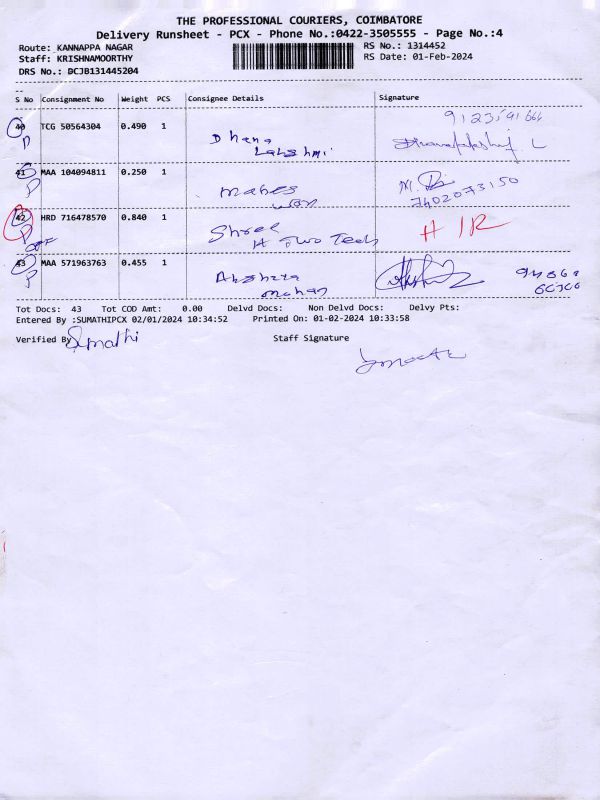 THE PROFESSIONAL COURIERS, COIMBATORE
Delivery Runsheet - PCX - Phone No.:0422-3505555 - Page No.:4
Route: KANNAPPA NAGAR
RS No.: 1314452
Staff: KRISHNAMOORTHY
RS Date: 01-Feb-2024
DRS No.: BCJB131445204
S No Consignment No Weight PCS Consignee Details Signature
40 TCG 50564304 0.490 1 Dhana
Lakshmi
P
41 MAA 104094811 0.250 1 Mahes
wari
7402073150
P
42 HRD 716478570 0.840 1 Shree
H Two Tech
H I R
P
OFF
43 MAA 571963763 0.455 1 Akshata
mohan
P
Tot Docs: 43 Tot COD Amt: 0.00 Delvd Docs: Non Delvd Docs: Delvy Pts:
Entered By :SUMATHIPCX 02/01/2024 10:34:52 Printed On: 01-02-2024 10:33:58
Verified By Sumathi
Staff Signature